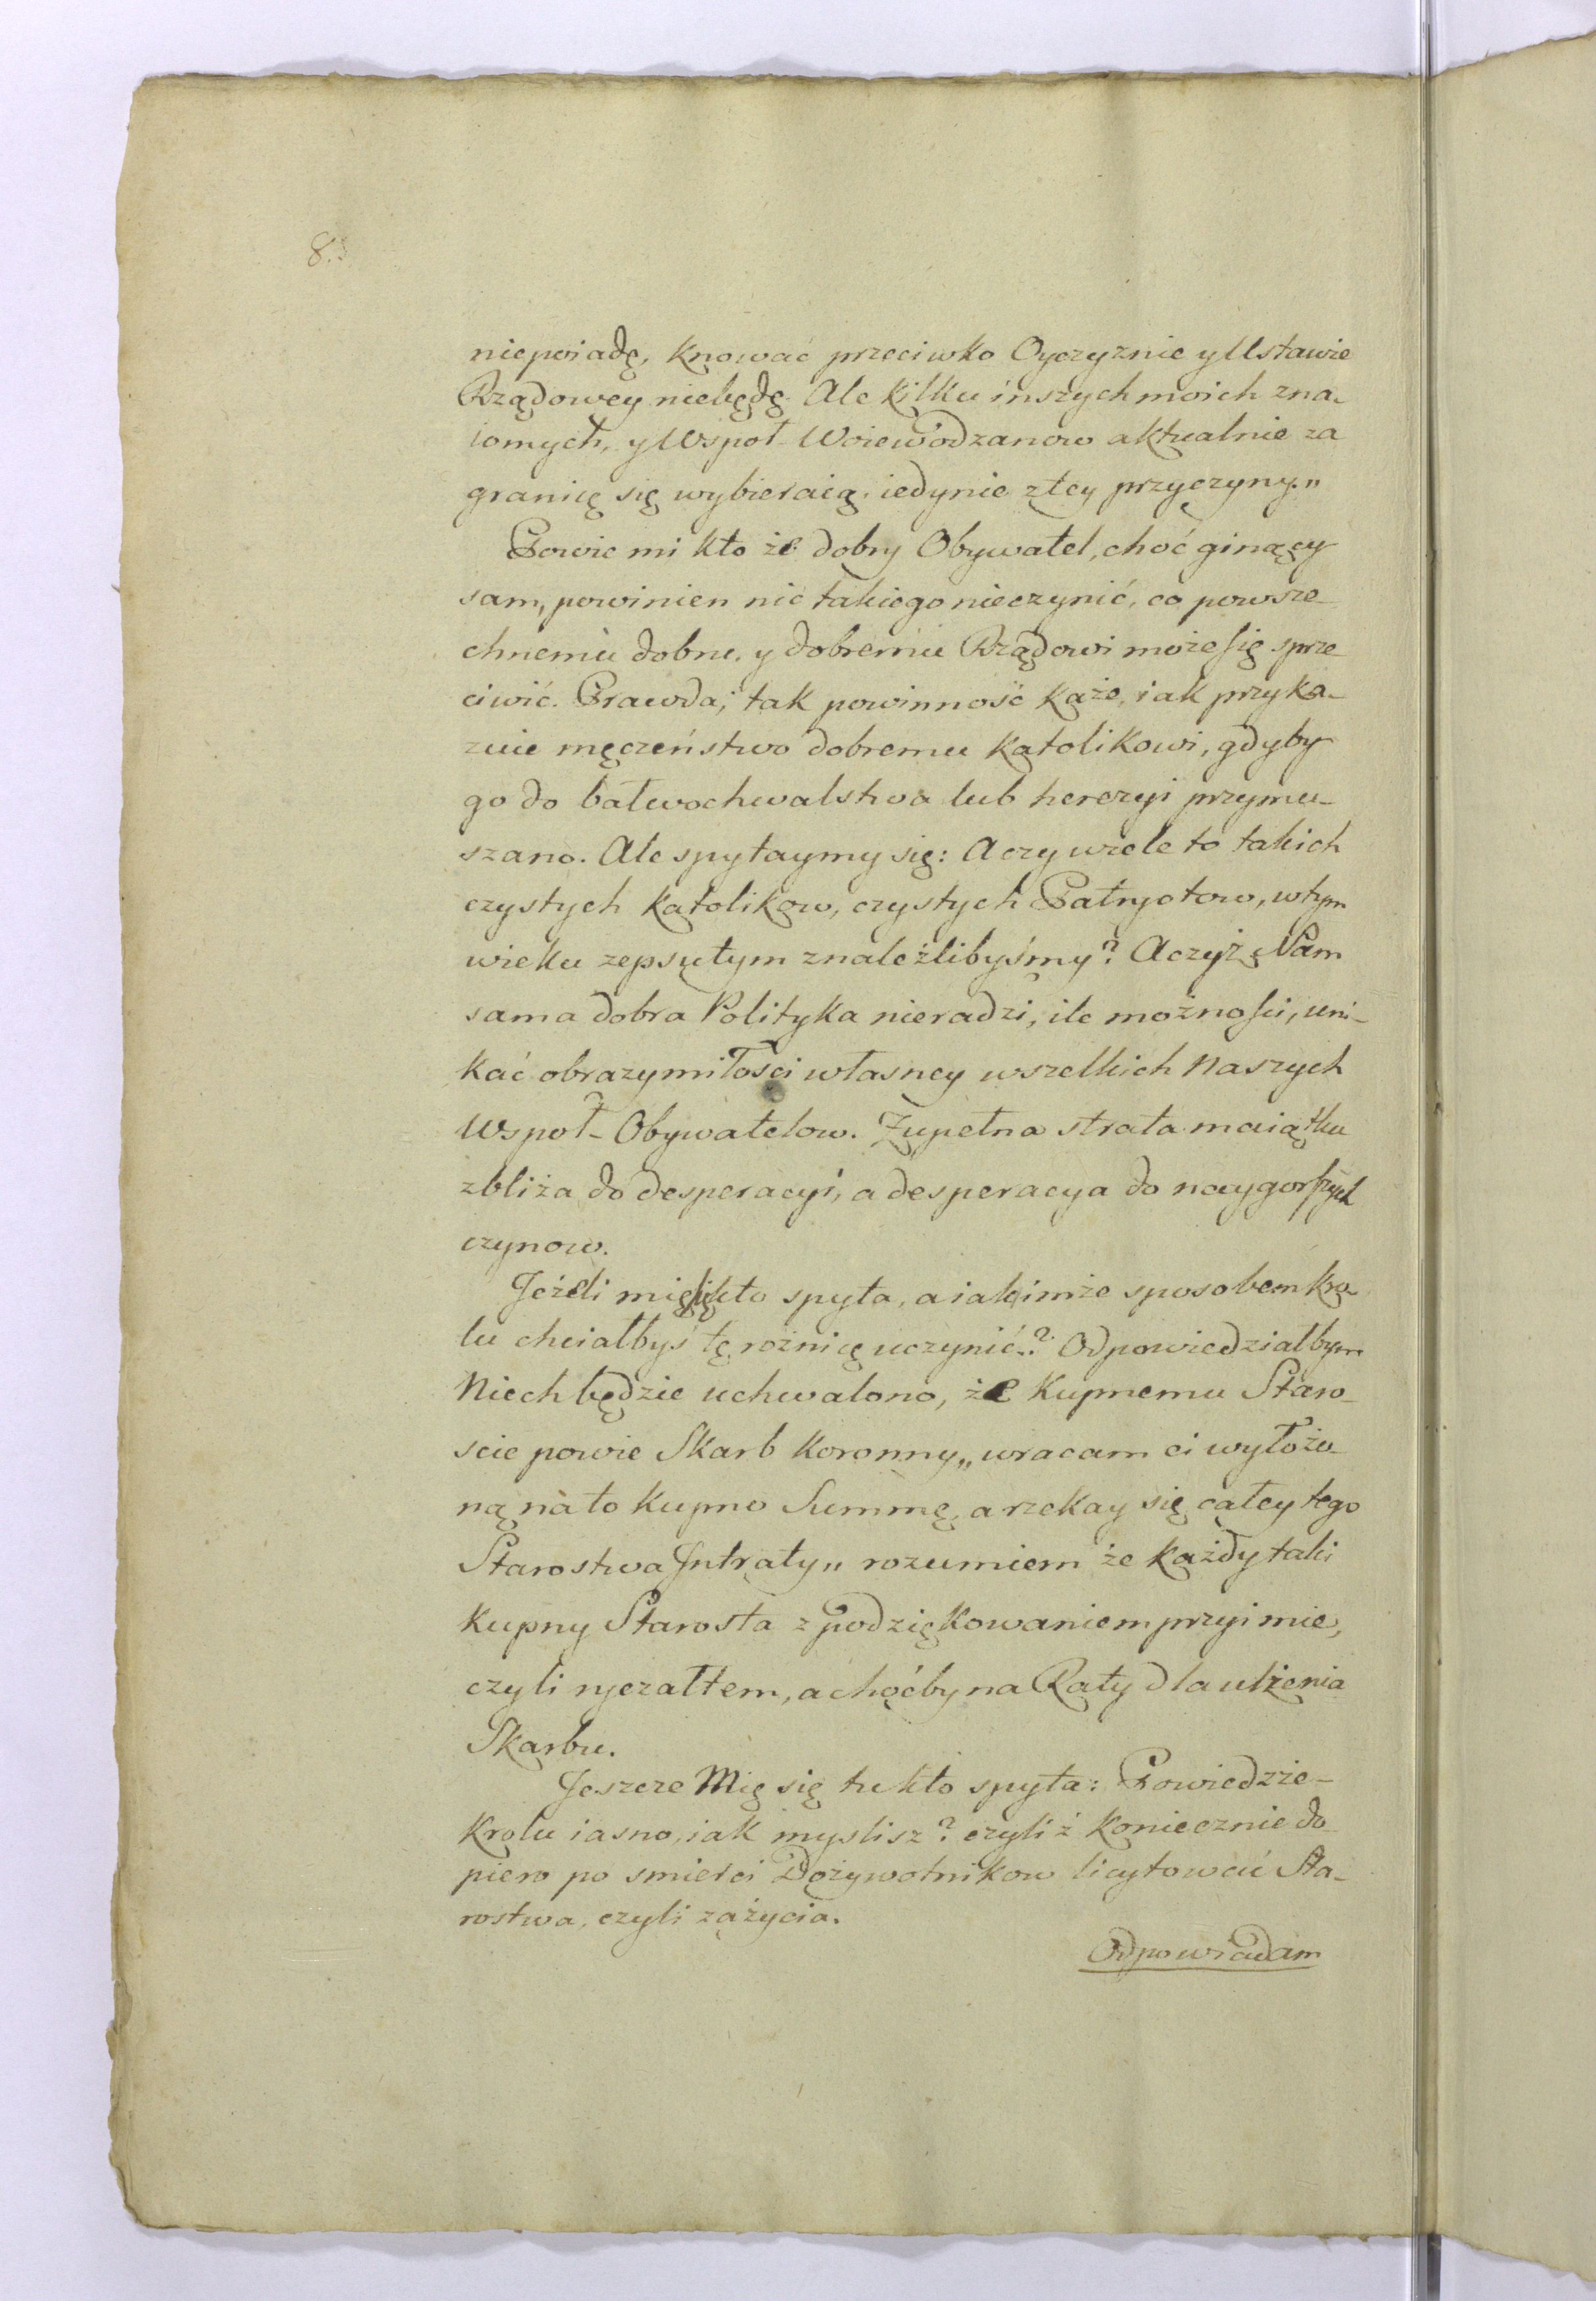 8.
niepoiadę, knować przeciwko Oyczyznie y Ustawie
Rządowey niebędę. Ale kilku inszych moich zna-
iomych, y Wspoł-Woiewodzanow aktualnie za
granicę się wybieraią iedynie z tey przyczyny."
Powie mi kto że dobry Obywatel, choć ginący
sam, powinien nic takiego nieczynić, co powsze-
chnemu dobru, y dobremu Rządowi może się sprze-
ciwić. Prawda; tak powinność każe, iak przyka-
zuie męczeństwo dobremu katolikowi, gdyby
go do bałwochwalstwa lub herezyi przymu-
szano. Ale spytaymy się: A czy wiele to takich
czystych katolikow, czystych Patryotow, w tym
wieku zepsutym znależlibyśmy? A czyż Nam
sama dobra Polityka nieradzi, ile możności, uni-
kać obrazy miłości własney wszelkich Naszych
Wspoł-Obywatelow. Zupełna strata maiątku
zbliża do desperacyi, a desperacya do naygorszych
czynow.
Jeżeli mię kto spyta, a iakimże sposobem Kro-
lu chciałbyś tę rożnicę uczynić? Odpowiedziałbym
Niech będzie uchwalono, że kupnemu Staro-
scie powie Skarb Koronny „wracam ci wyłożo-
ną na to kupno Summę, a rzekay się całey tego
Starostwa Jntraty" rozumiem że każdy taki
kupny Starosta z podziękowaniem przyimie,
czyli ryczałtem, a choćby na Raty dla ulżenia
Skarbu.
Jeszcze Mię się tu kto spyta: Powiedzże
Krolu iasno, iak myslisz? czyliż koniecznie do
piero po smierci Dożywotnikow licytować Sta-
rostwa, czyli za życia.
Odpowiadam